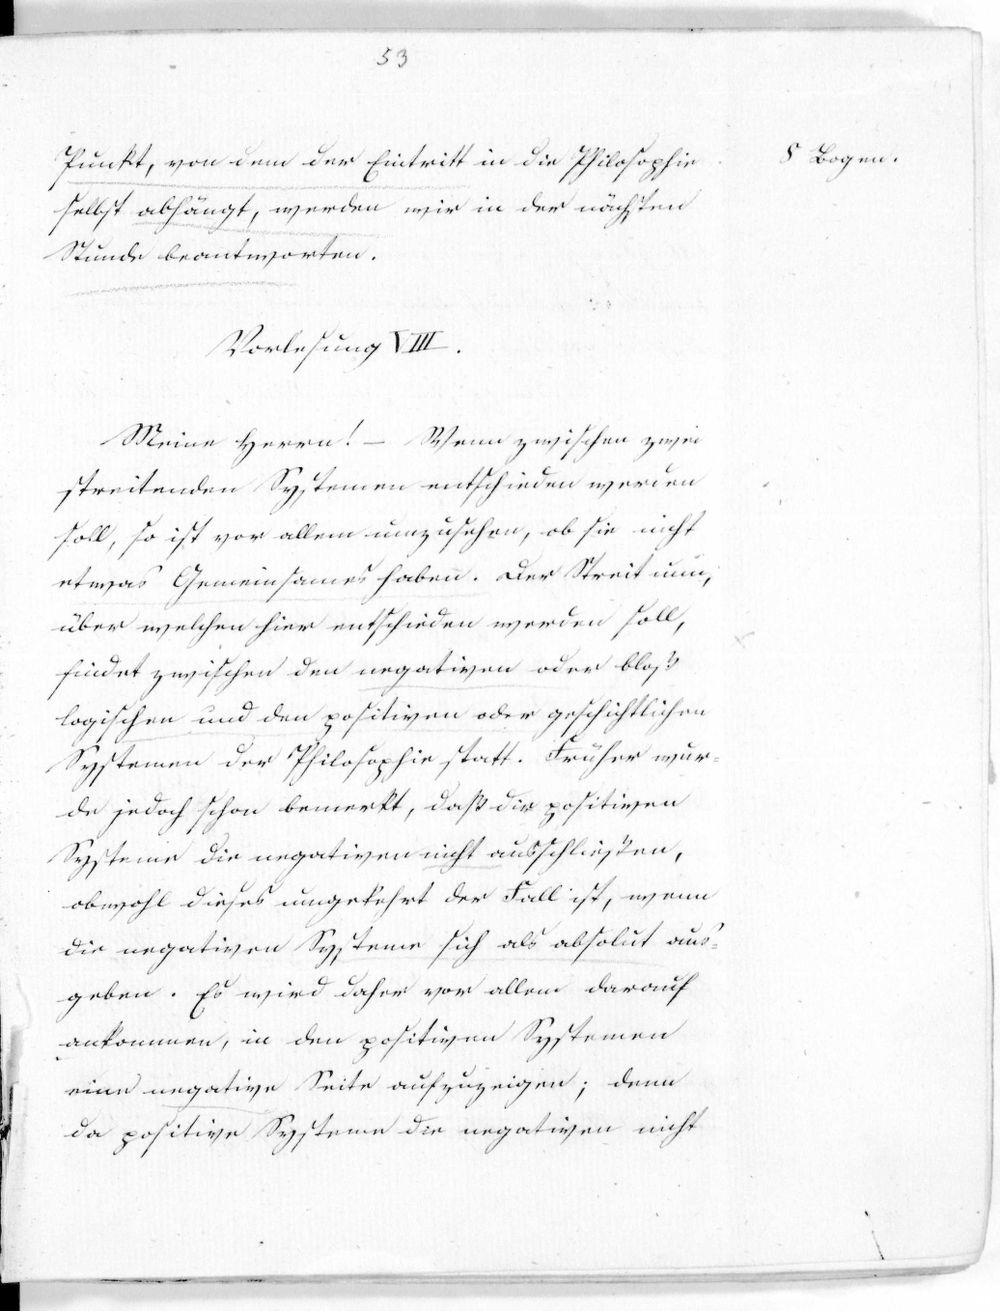 53
Punkt, von dem der Eintritt in die Philosophie
8 Bogen.
selbst abhängt, werden wir in der nächsten
Stunde beantworten.
Vorlesung VIII.
Meine Herrn! — Wenn zwischen zwei
streitenden Systemen entschieden werden
soll, so ist vor allem umzusehen, ob sie nicht
etwas Gemeinsames haben. Der Streit nun,
über welchen hier entschieden werden soll,
findet zwischen den negativen oder bloß
logischen und den positiven oder geschichtlichen
Systemen der Philosophie statt. Früher wur-
de jedoch schon bemerkt, daß die positiven
Systeme die negativen nicht ausschließen,
obwohl dieses umgekehrt der Fall ist, wenn
die negativen Systeme sich als absolut aus-
geben. Es wird daher vor allem darauf
ankommen, in den positiven Systemen
eine negative Seite aufzuzeigen; denn
da positive Systeme die negativen nicht